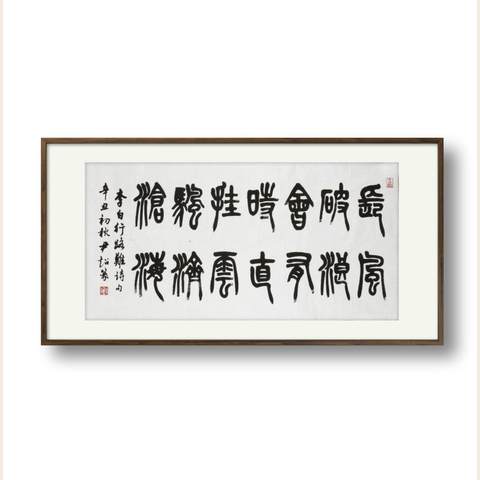 長風
破浪
會有
時直
挂雲
颿濟
滄海
李白行路難诗句
辛丑初秋尹篆